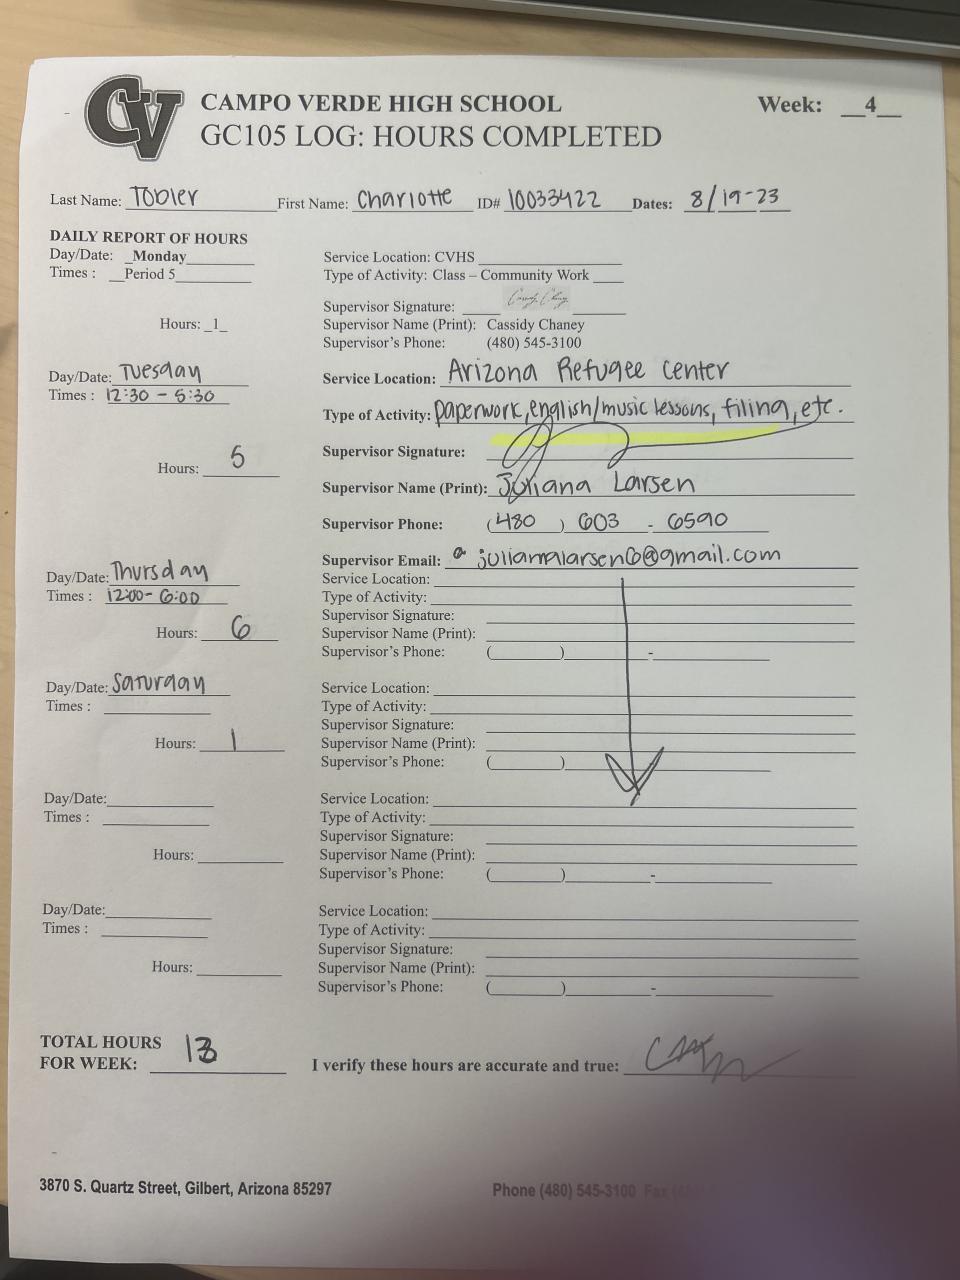 CV
CAMPO VERDE HIGH SCHOOL Week: __4__
GC105 LOG: HOURS COMPLETED
Last Name: Tobler First Name: Charlotte ID# 10033422 Dates: 8/19-23
DAILY REPORT OF HOURS
Day/Date: _Monday Service Location: CVHS
Times : __Period 5 Type of Activity: Class – Community Work
Supervisor Signature:
Hours: _1_ Supervisor Name (Print): Cassidy Chaney
Supervisor's Phone: (480) 545-3100
Day/Date: Tuesday Service Location: Arizona Refugee Center
Times : 12:30 - 5:30
Type of Activity: paperwork, english/music lessons, filing, etc.
Supervisor Signature:
Hours: 5
Supervisor Name (Print): Juliana Larsen
Supervisor Phone: (480) 603 - 6590
Supervisor Email: julianalarsen6@gmail.com
Day/Date: Thursday Service Location:
Times : 12:00- 6:00 Type of Activity:
Supervisor Signature:
Hours: 6 Supervisor Name (Print):
Supervisor's Phone: ( ) -
Day/Date: Saturday Service Location:
Times : Type of Activity:
Supervisor Signature:
Hours: 1 Supervisor Name (Print):
Supervisor's Phone: ( )
Day/Date: Service Location:
Times : Type of Activity:
Supervisor Signature:
Hours: Supervisor Name (Print):
Supervisor's Phone: ( ) -
Day/Date: Service Location:
Times : Type of Activity:
Supervisor Signature:
Hours: Supervisor Name (Print):
Supervisor's Phone: ( ) -
TOTAL HOURS
FOR WEEK: 13 I verify these hours are accurate and true:
3870 S. Quartz Street, Gilbert, Arizona 85297 Phone (480) 545-3100 Fax